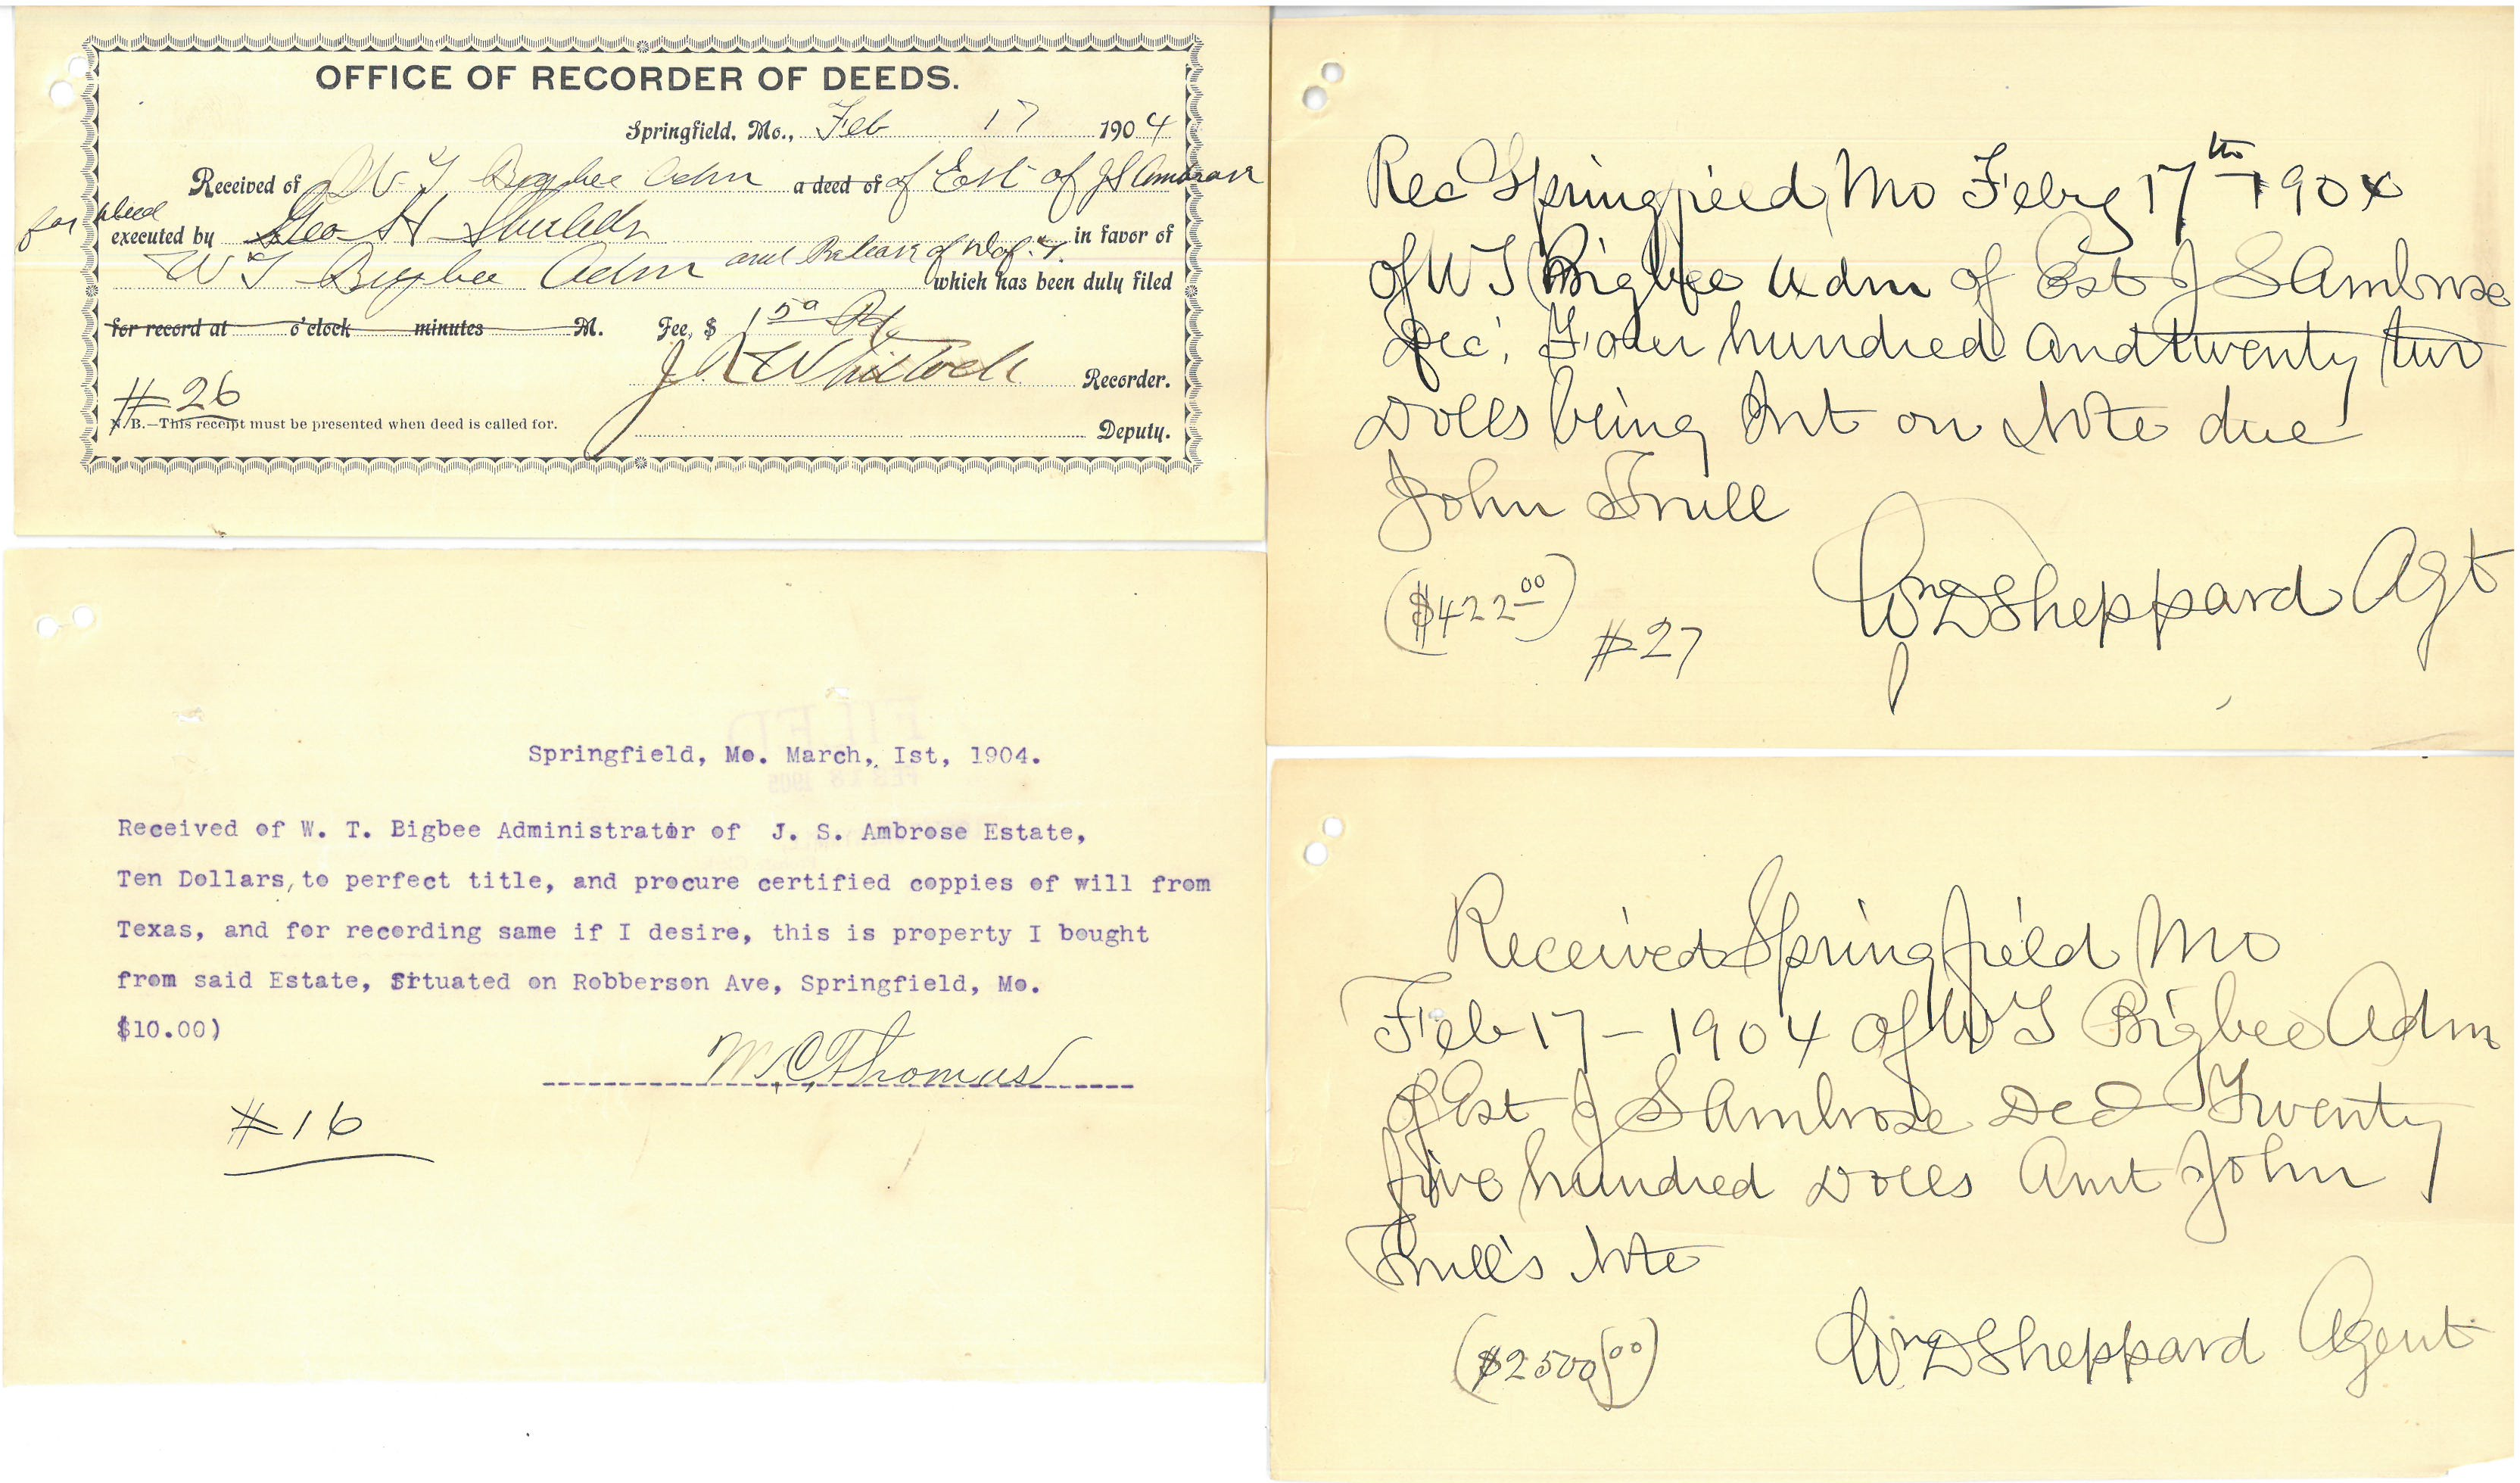 OFFICE OF RECORDER OF DEEDS.
Springfield, Mo., Feb 17 1904
Received of W T Bigbee Adm a deed of of Est of J S Ambrose
for deed
executed by Geo H Shields in favor of
W T Bigbee Adm and Release of which has been duly filed
for record at o'clock minutes M. Fee, $ 1 50 Pd
J R Whitlock Recorder.
#26
N.B.—This receipt must be presented when deed is called for.
Deputy.
Rec Springfield Mo Feby 17th 1904
of W T Bigbee Adm of Est J S Ambrose
Dec'. Four hundred and twenty two
Dolls being Int on Note due
John Trull
($422 00)
#27
Wm D Sheppard Agt
Springfield, Mo. March, Ist, 1904.
Received of W. T. Bigbee Administrator of J. S. Ambrose Estate,
Ten Dollars, to perfect title, and procure certified coppies of will from
Texas, and for recording same if I desire, this is property I bought
from said Estate, Situated on Robberson Ave, Springfield, Mo.
$10.00)
M. C. Thomas
#16
Received Springfield Mo
Feb 17 - 1904 of W T Bigbee Adm
of Est J S Ambrose Decd Twenty
five hundred Dolls Amt John
Trull's Note
($2500 00)
Wm D Sheppard Agent